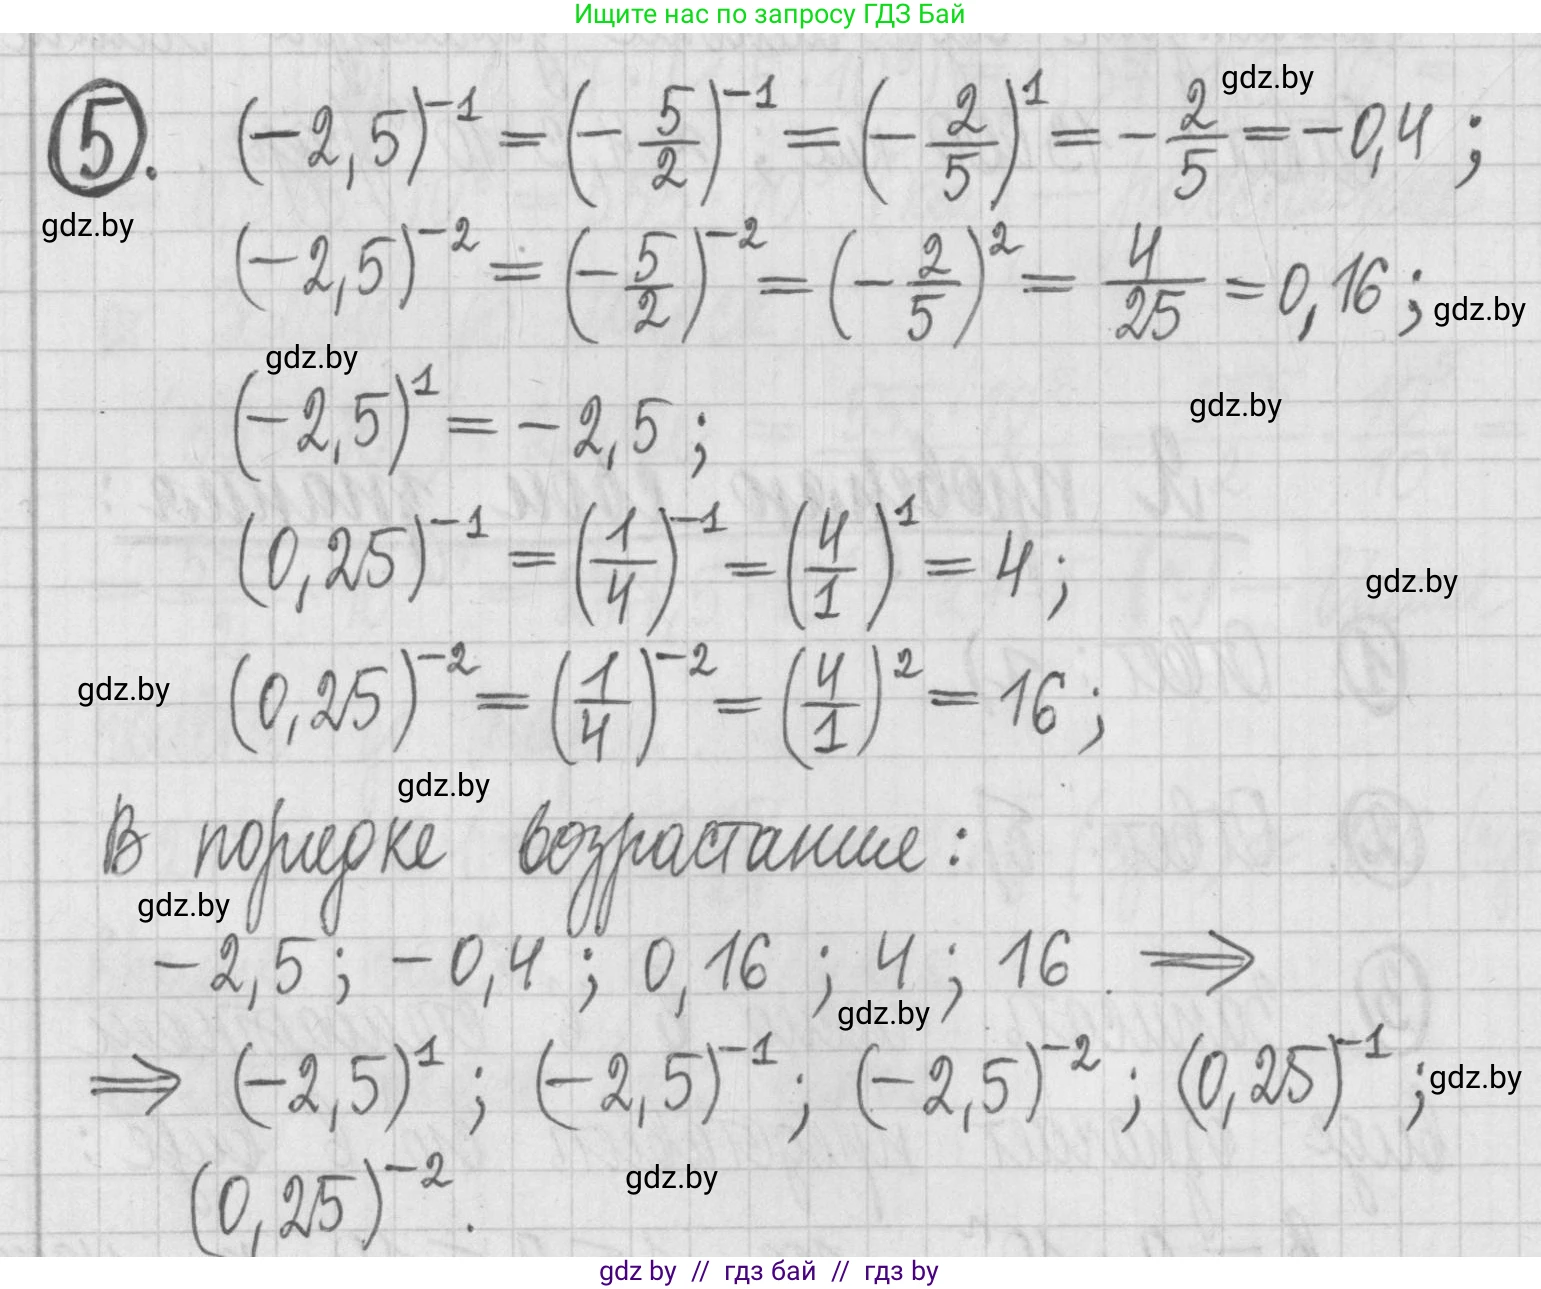 Ищите нас по запросу ГДЗ Бай
gdz.by
5. (-2,5)^-1 = (-5/2)^-1 = (-2/5)^1 = -2/5 = -0,4 ;
gdz.by
(-2,5)^-2 = (-5/2)^-2 = (-2/5)^2 = 4/25 = 0,16 ;
gdz.by
gdz.by
(-2,5)^1 = -2,5 ;
gdz.by
(0,25)^-1 = (1/4)^-1 = (4/1)^1 = 4 ;
gdz.by
(0,25)^-2 = (1/4)^-2 = (4/1)^2 = 16 ;
gdz.by
gdz.by
В порядке возрастания :
gdz.by
-2,5 ; -0,4 ; 0,16 ; 4 ; 16 . ⇒
gdz.by
⇒ (-2,5)^1 ; (-2,5)^-1 ; (-2,5)^-2 ; (0,25)^-1 ;
gdz.by
(0,25)^-2 .
gdz.by
gdz by // гдз бай // гдз by